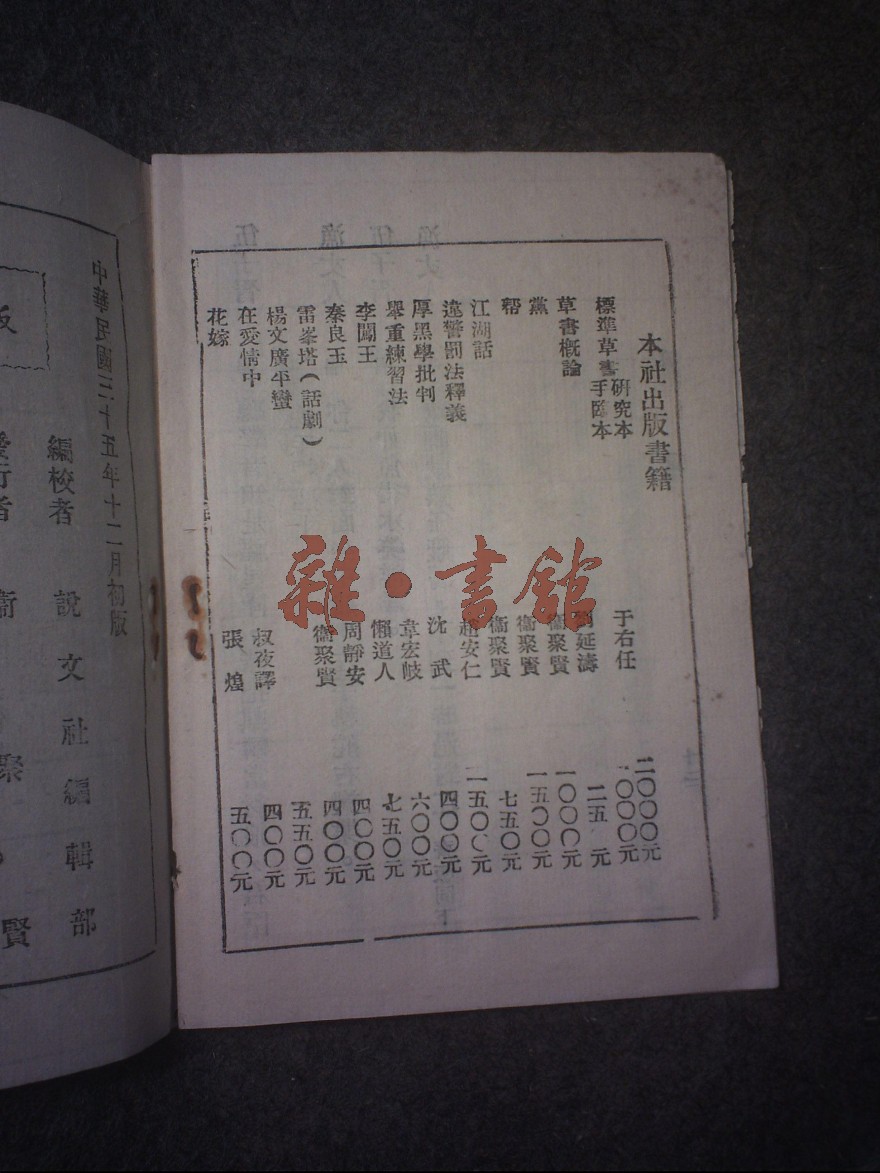 本社出版書籍
標準草書 研究本 于右任 二〇〇〇元
手臨本 一〇〇〇元
草書概論 劉延濤 二五 元
黨 衞聚賢 一〇〇〇元
帮 衞聚賢 一五〇〇元
江湖話 衞聚賢 七五〇元
違警罰法釋義 趙安仁 一五〇〇元
厚黑學批判 沈武 四〇〇元
舉重練習法 韋宏岐 六〇〇元
李闖王 懶道人 七五〇元
秦良玉 周靜安 四〇〇元
雷峯塔（話劇） 衞聚賢 四〇〇元
楊文廣平蠻 五五〇元
在愛情中 叔夜譯 四〇〇元
花嫁 張煌 五〇〇元
雜·書館
中華民國三十五年十二月初版
編校者 說文社編輯部
發行者 衞聚賢
版